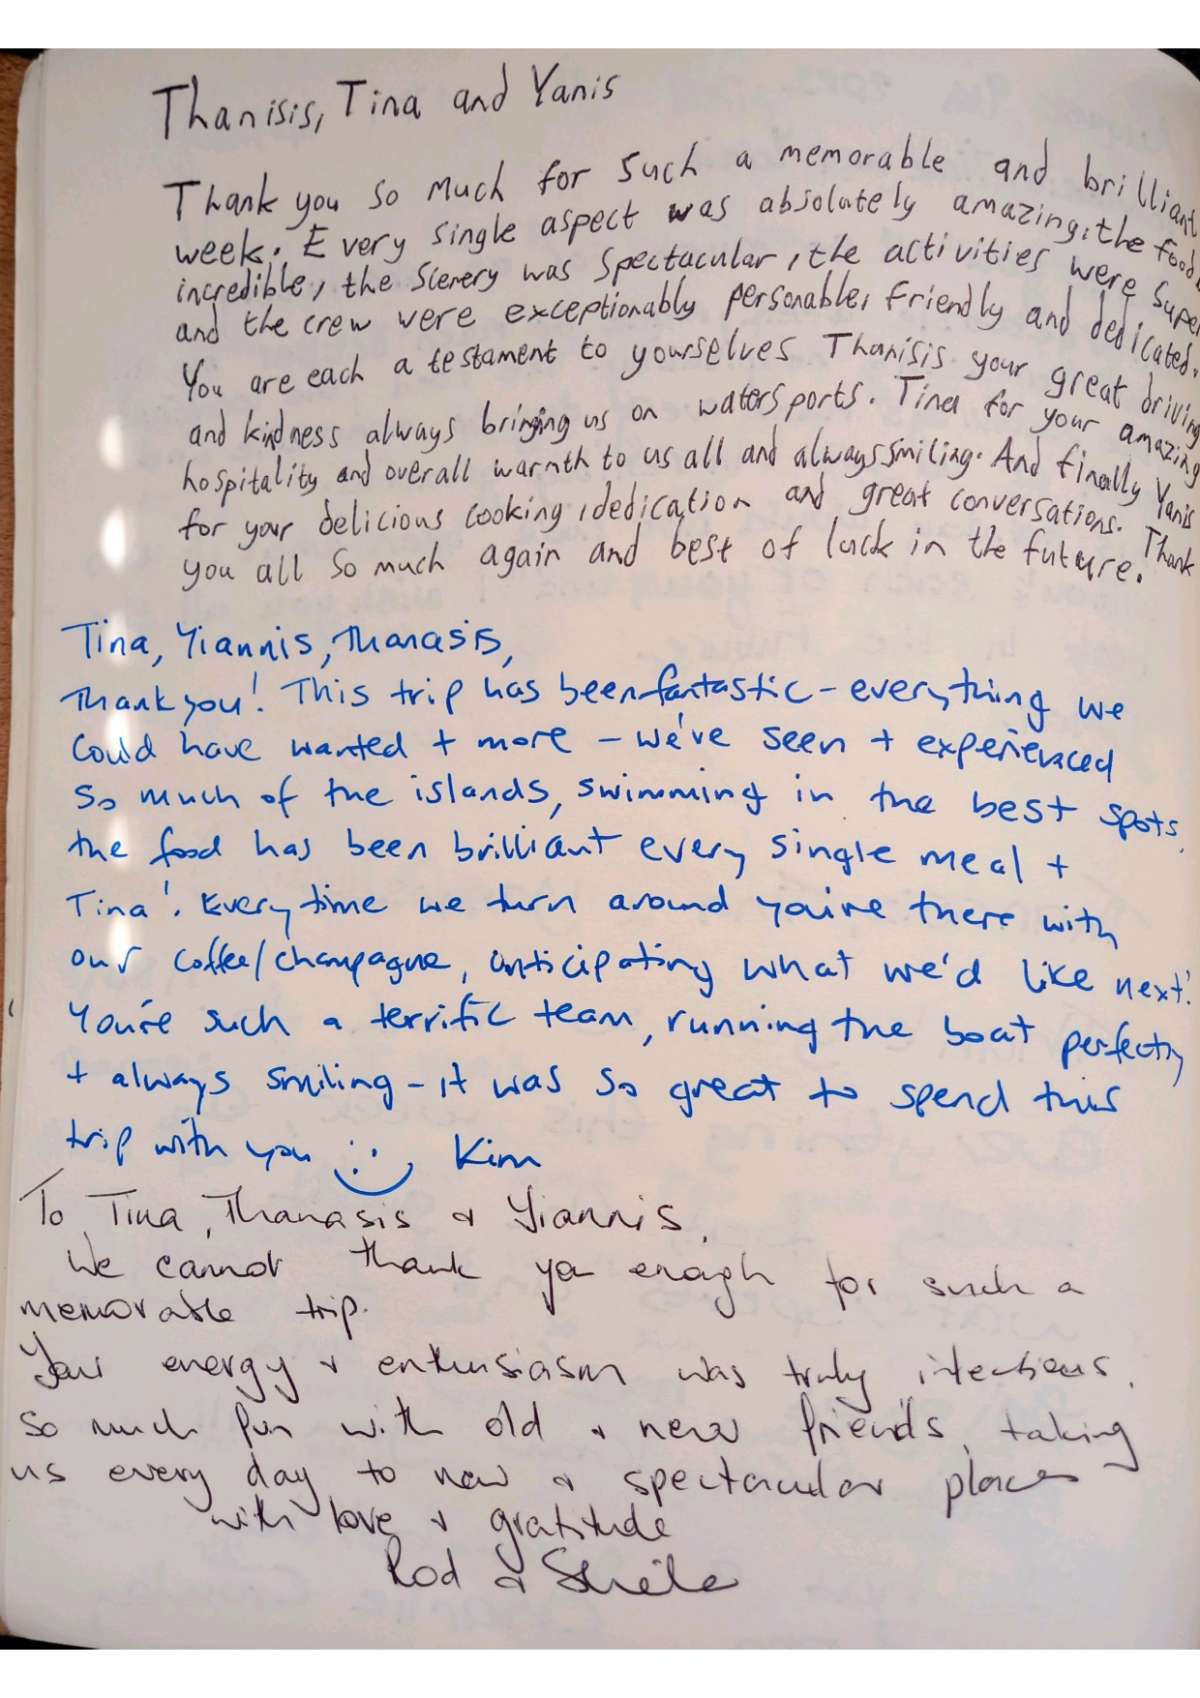 Thanisis, Tina and Yanis
Thank you so much for such a memorable and brilliant
week. Every single aspect was absolutely amazing, the food
incredible, the scenery was spectacular, the activities were super
and the crew were exceptionably personable, friendly and dedicated.
You are each a testament to yourselves Thanisis your great driving
and kindness always bringing us on watersports. Tina for your amazing
hospitality and overall warmth to us all and always smiling. And finally Yanis
for your delicious cooking, dedication and great conversations. Thank
you all so much again and best of luck in the future.
Tina, Yiannis, Thanasis,
Thank you! This trip has been fantastic - everything we
could have wanted + more - we've seen + experienced
so much of the islands, swimming in the best spots,
the food has been brilliant every single meal +
Tina! Every time we turn around you're there with
our coffee/champagne, anticipating what we'd like next!
You're such a terrific team, running the boat perfectly
+ always smiling - it was so great to spend this
trip with you Kim
To Tina, Thanasis & Yiannis,
We cannot thank you enough for such a
memorable trip.
Your energy & enthusiasm was truly infectious.
So much fun with old & new friends, taking
us every day to new & spectacular places
with love & gratitude
Rod &